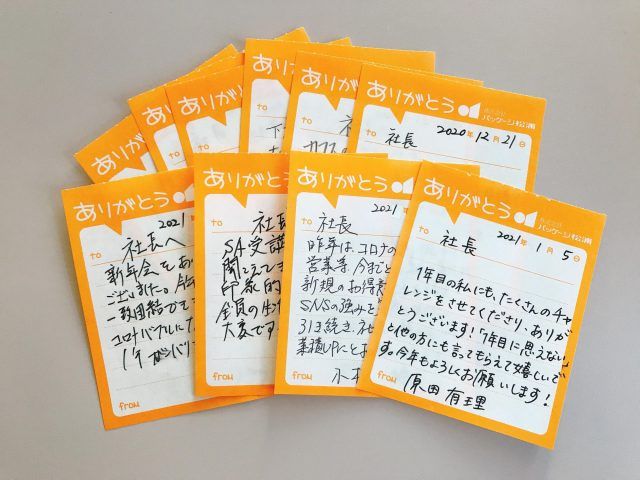 ありがとう
ありがとう
ありがとう
ありがとう
ありがとう
株式会社
パッケージ松浦
to
社長
2020年12月21日
ありがとう
to
社長へ
2021
新年会をあ
ございました。今年
一致団結でモ
コロナバブルに
from
ありがとう
to
社長
SA受講
聞こえてき
印象的
全員の生
大変です
from
ありがとう
to
社長
2021
昨年は、コロナの
営業等、今まで
新規のお得意
SNSの強みを
引き続き、社
業績UPにとお
from
ありがとう
株式会社
パッケージ松浦
to
社長
2021年1月5日
1年目の私にも、たくさんのチャ
レンジをさせてくださり、ありが
とうございます!「1年目に思えない」
と他の方にも言ってもらえて嬉しいで
す。今年もよろしくお願いします!
from
原田 有理